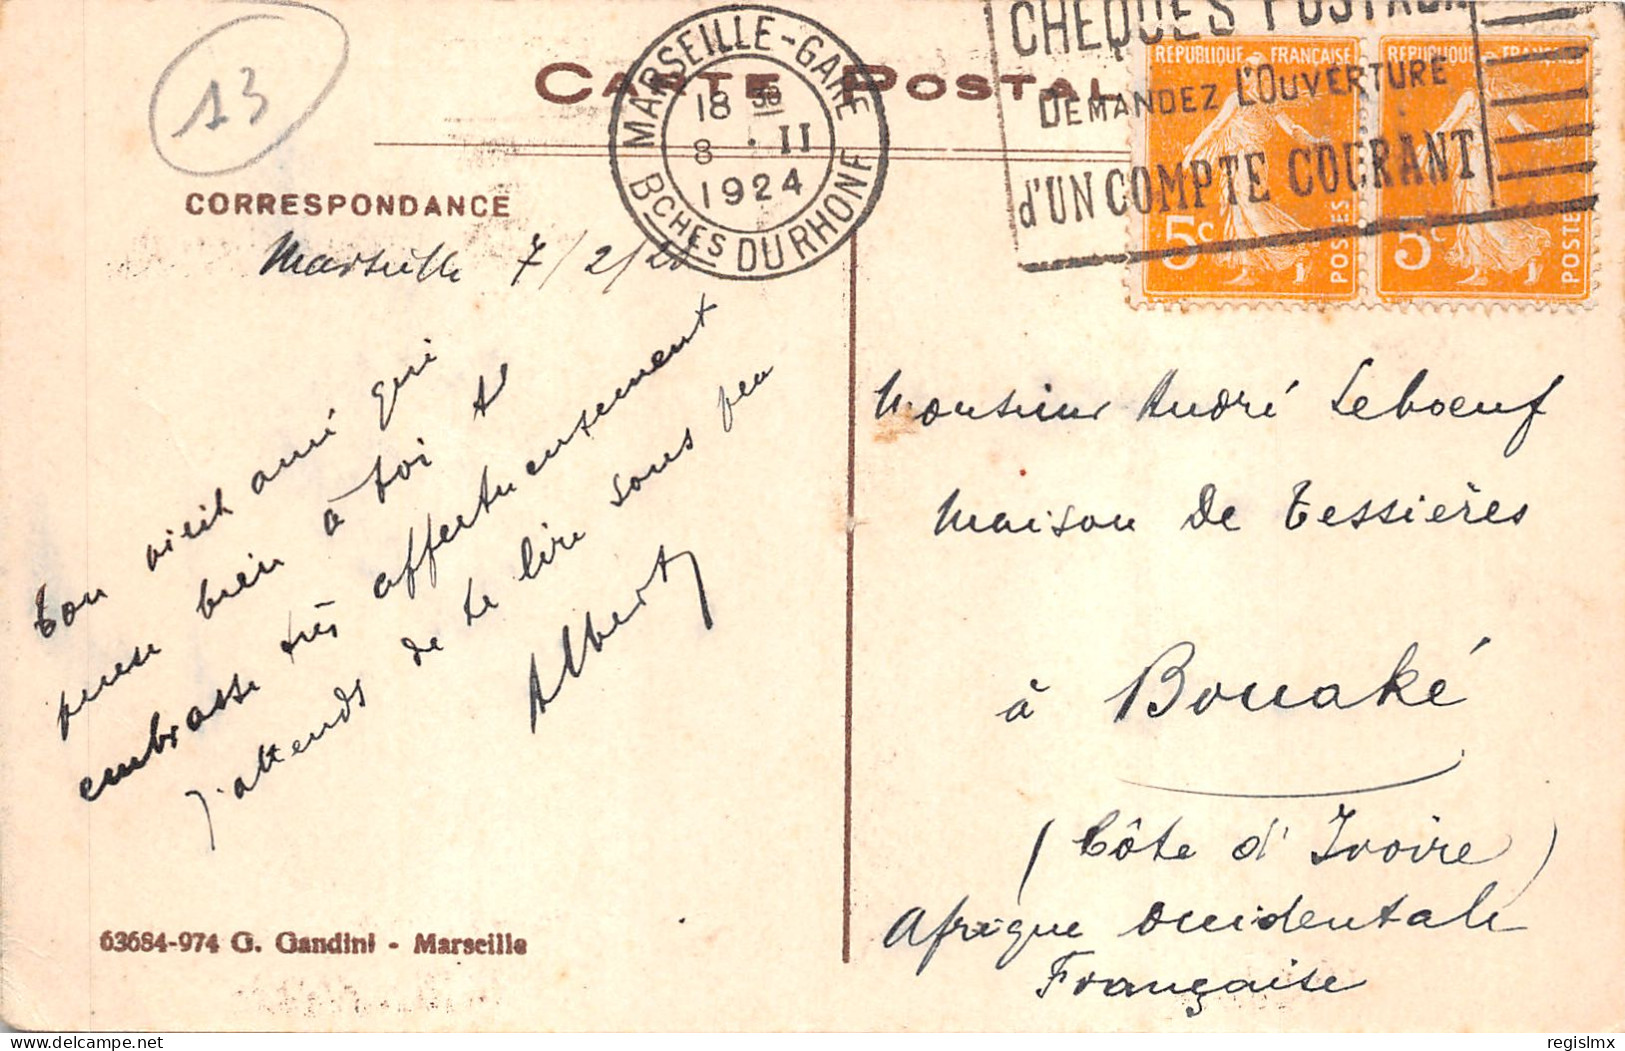 13
CARTE POSTAL
MARSEILLE-GARE
18 30
8 · II
1924
BCHES DU RHONE
CHEQUES POSTAUX
DEMANDEZ L'OUVERTURE
d'UN COMPTE COURANT
REPUBLIQUE FRANÇAISE
5c
POSTES
REPUBLIQUE FRANÇAISE
5c
POSTES
CORRESPONDANCE
Marseille 7/2/24
ton vieil ami qui
pense bien à toi te
embrasse très affectueusement
J'attends de te lire sous peu
Albert
Monsieur André Leboeuf
Maison de Tessières
à Bouaké
(Côte d'Ivoire)
Afrique Occidentale
Française
63684-974 G. Gandini - Marseille
regislmx
delcampe.net